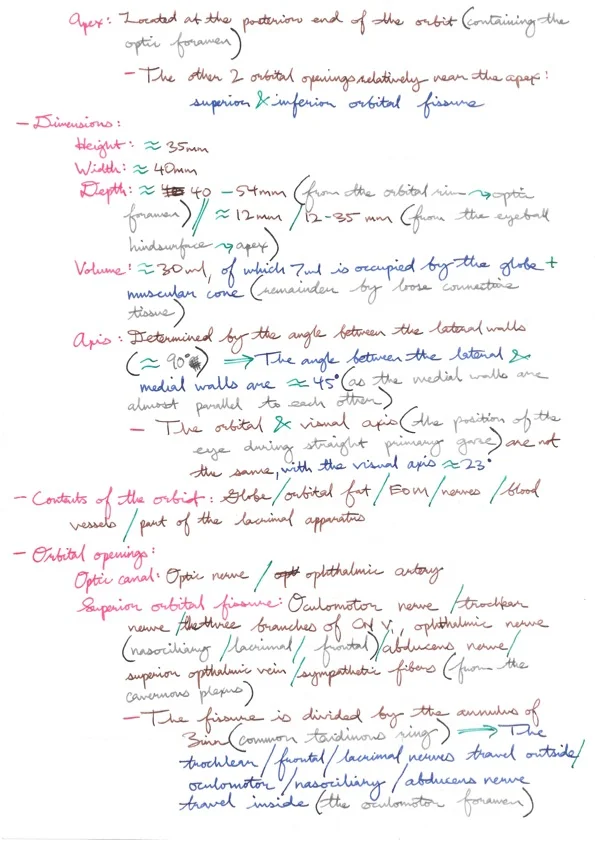 Apex: Located at the posterior end of the orbit (containing the
optic foramen)
- The other 2 orbital openings relatively near the apex:
superior & inferior orbital fissure
- Dimensions:
Height: ≈ 35mm
Width: ≈ 40mm
Depth: ≈ 40 - 54mm (from the orbital rim ⇝ optic
foramen) // ≈ 12mm / 12-35 mm (from the eyeball
hindsurface ⇝ apex)
Volume: ≈ 30ml, of which 7ml is occupied by the globe +
muscular cone (remainder by loose connective
tissue)
Axis: Determined by the angle between the lateral walls
(≈ 90°) ⇒ The angle between the lateral &
medial walls are ≈ 45° (as the medial walls are
almost parallel to each other)
- The orbital & visual axis (the position of the
eye during straight primary gaze) are not
the same, with the visual axis ≈ 23°
- Contents of the orbit: Globe / orbital fat / EOM / nerves / blood
vessels / part of the lacrimal apparatus
- Orbital openings:
Optic canal: Optic nerve / ophthalmic artery
Superior orbital fissure: Oculomotor nerve / trochlear
nerve / the three branches of CN V₁, ophthalmic nerve
(nasociliary / lacrimal / frontal) / abducens nerve /
superior opthalmic vein / sympathetic fibers (from the
cavernous plexus)
- The fissure is divided by the annulus of
Zinn (common tendinous ring) ⇒ The
trochlear / frontal / lacrimal nerves travel outside /
oculomotor / nasociliary / abducens nerve
travel inside (the oculomotor foramen)